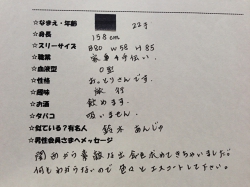 ☆なまえ・年齢 22才
☆身長 158cm
☆スリーサイズ B80 W58 H85
☆職業 家事手伝い
☆血液型 O型
☆性格 おっとりさんです。
☆趣味 旅行
☆お酒 飲めます。
☆タバコ 吸いません。
☆似ている?有名人 鈴木あんじゅ
☆男性会員さまへメッセージ
関西から素敵な出会を求めてきちゃいました。
何もわからないので色々とエスコートして下さい。